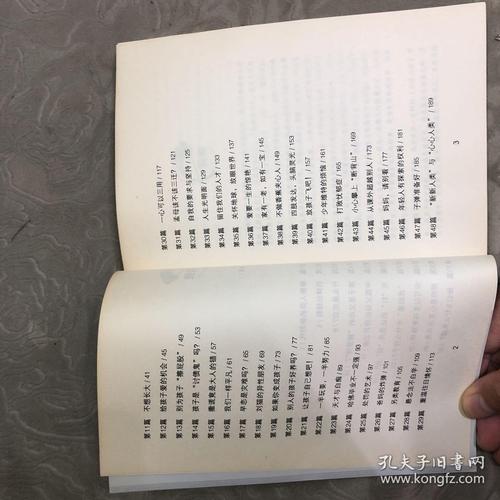 第11篇 不将长大 / 41
第12篇 给孩子爱的机会 / 45
第13篇 别为孩子“擦屁股” / 49
第14篇 孩子是“讨债鬼”吗? / 53
第15篇 撒谎是大人的错 / 57
第16篇 我们一样平凡 / 61
第17篇 早恋是灾难吗? / 65
第18篇 刘猫的异性朋友 / 69
第19篇 如果你变成孩子 / 73
第20篇 别人的孩子好养吗? / 77
第21篇 让孩子自己想吧! / 81
第22篇 一半玩耍,一半努力 / 85
第23篇 天才与自痴 / 89
第24篇 哈佛毕业不一定强 / 93
第25篇 处罚的艺术 / 97
第26篇 爸妈的炸弹 / 101
第27篇 另类教育 / 105
第28篇 善念法不白学 / 109
第29篇 重温往日情怀 / 113
2
第30篇 一心可以二用 / 117
第31篇 孟母该不该三迁? / 121
第32篇 自我的要求与坚持 / 125
第33篇 人生光明面 / 129
第34篇 留住我们的人才 / 133
第35篇 关怀地球,放眼世界 / 137
第36篇 爱要一生的惊艳 / 141
第37篇 家有一老,如有一宝 / 145
第38篇 不做香蕉夹心人 / 149
第39篇 四肢发达,头脑灵光 / 153
第40篇 放孩子飞吧! / 157
第41篇 少年维特的烦恼 / 161
第42篇 打败忧郁症 / 165
第43篇 小心攀上“断背山” / 169
第44篇 从课外超越别人 / 173
第45篇 妈妈,请别看 / 177
第46篇 年轻人有探索的权利 / 181
第47篇 子弹准备好 / 185
第48篇 “新新人类”与“心心人类” / 189
3
孔夫子旧书网
www.kongfz.com